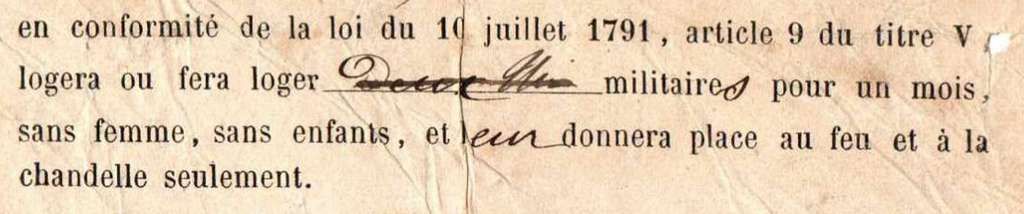 en conformité de la loi du 10 juillet 1791, article 9 du titre V,
logera ou fera loger Deux militaires pour un mois,
sans femme, sans enfants, et leur donnera place au feu et à la
chandelle seulement.